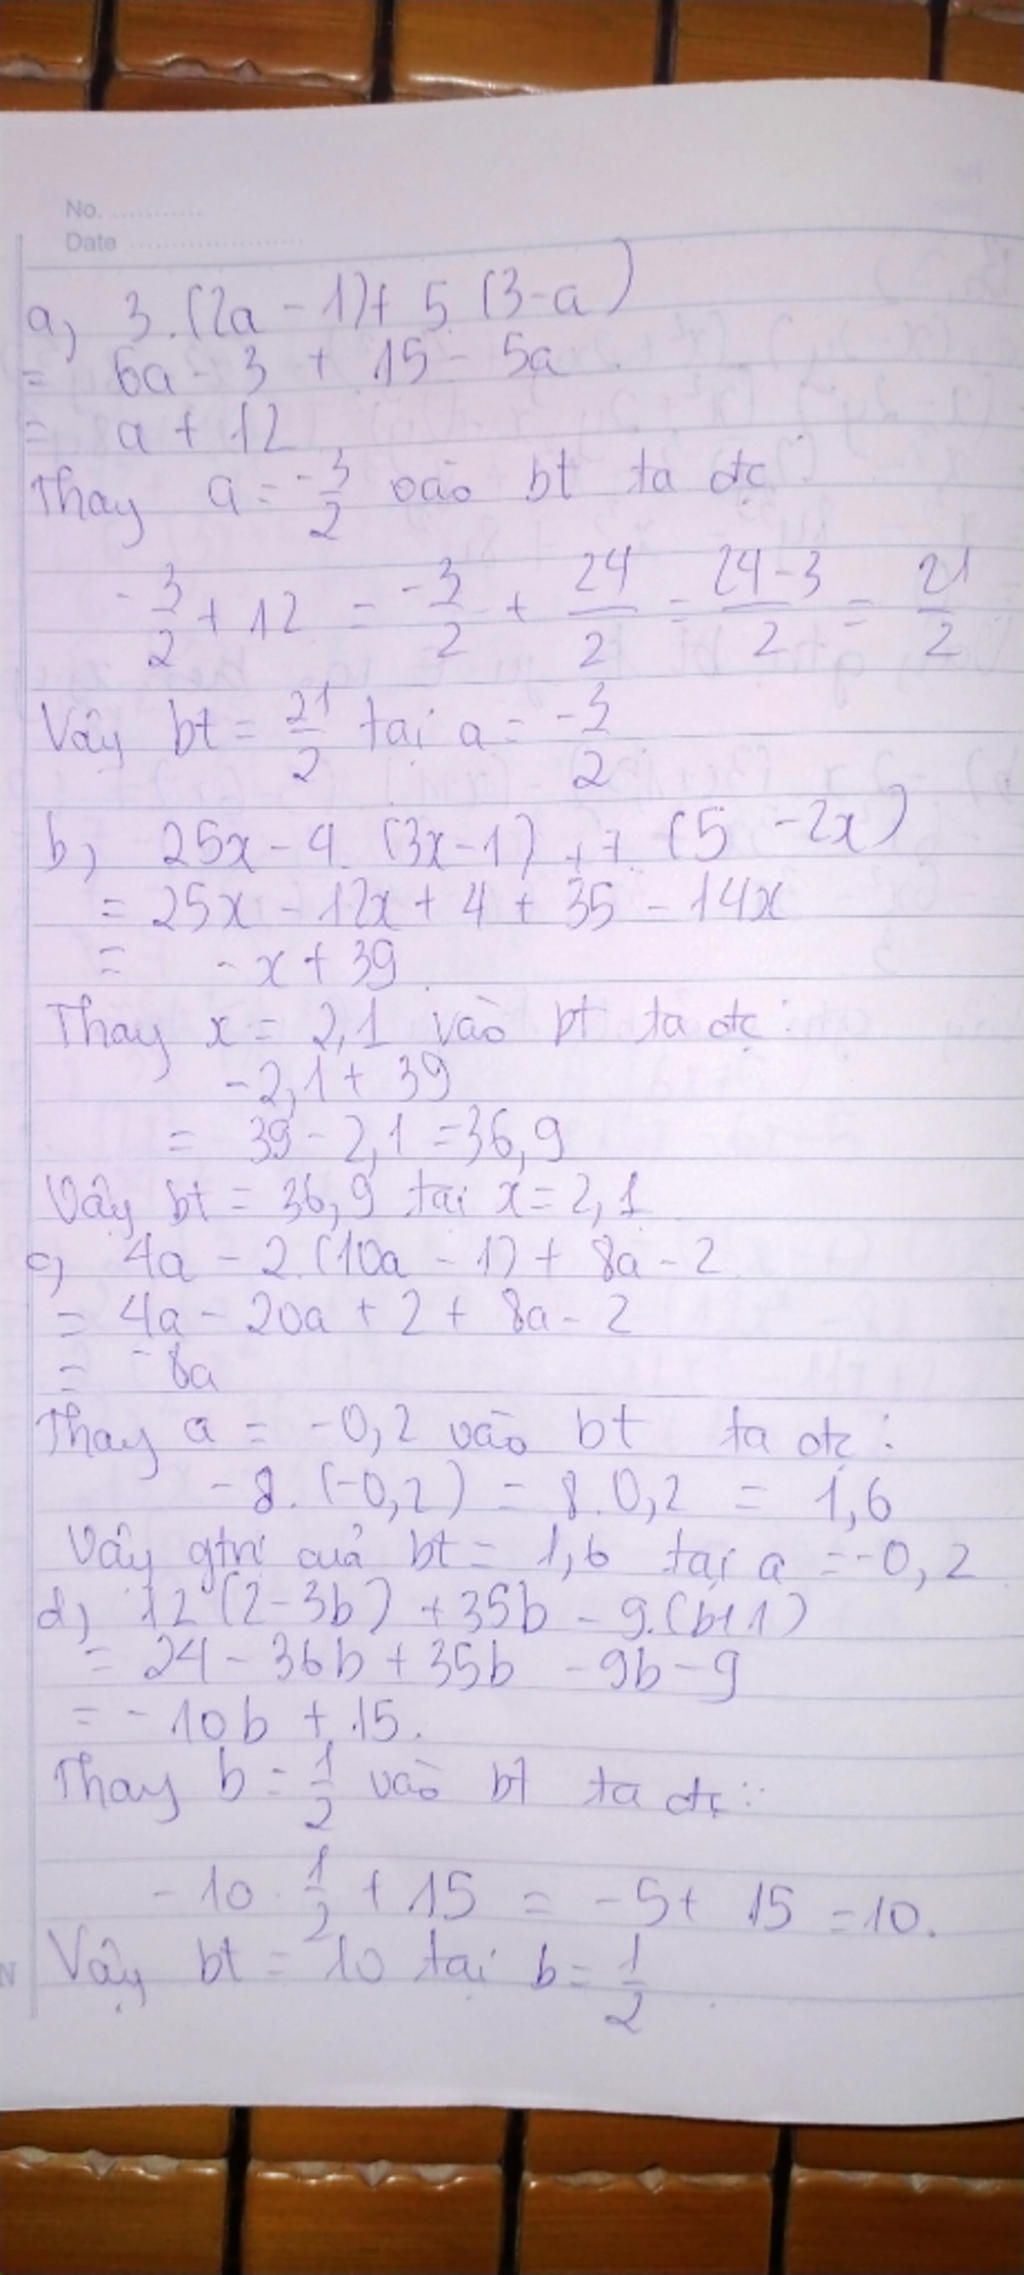 No. ............
Date ......................
a) 3.(2a - 1) + 5.(3-a)
= 6a - 3 + 15 - 5a
= a + 12
Thay a = -3/2 vào bt ta đc:
-3/2 + 12 = -3/2 + 24/2 = 24-3/2 = 21/2
Vậy bt = 21/2 tại a = -3/2
b) 25x - 4.(3x-1) + 7.(5 - 2x)
= 25x - 12x + 4 + 35 - 14x
= -x + 39
Thay x = 2,1 vào bt ta đc:
-2,1 + 39
= 39 - 2,1 = 36,9
Vậy bt = 36,9 tại x = 2,1
c) 4a - 2.(10a - 1) + 8a - 2
= 4a - 20a + 2 + 8a - 2
= -8a
Thay a = -0,2 vào bt ta đc:
-8.(-0,2) = 8.0,2 = 1,6
Vậy gtri của bt = 1,6 tại a = -0,2
d) 12(2-3b) + 35b - 9.(b+1)
= 24 - 36b + 35b - 9b - 9
= -10b + 15.
Thay b = 1/2 vào bt ta đc:
-10 . 1/2 + 15 = -5 + 15 = 10.
Vậy bt = 10 tại b = 1/2